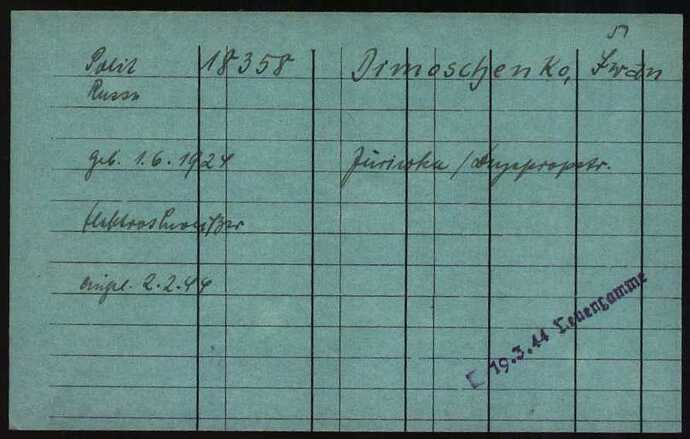 Polit 18358 Dimoschenko, Iwan
Russe
geb. 1.6.1924 /Dnjepropetr.
Elektroschweißer
eingel. 2.2.44
19.3.44 Neuengamme